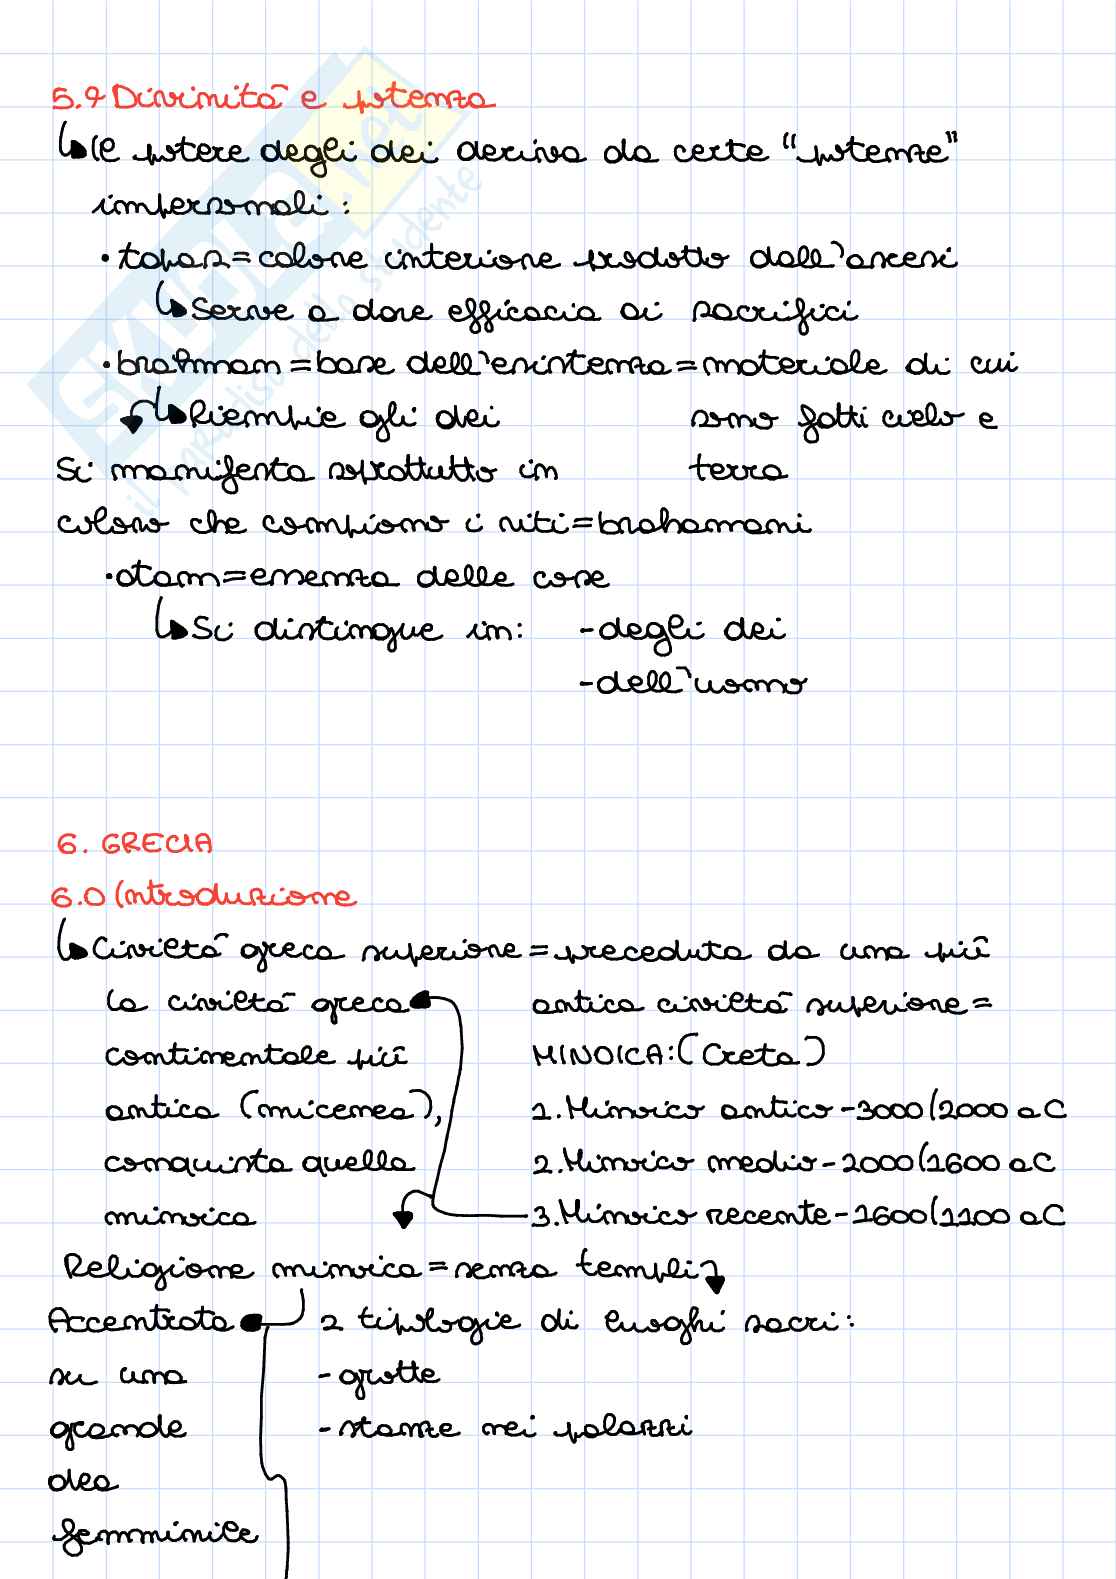 5.9 Divinità e potenza
Il potere degli dei deriva da certe "potenze"
impersonali:
• tapas = calore interiore prodotto dall'ascesi
Serve a dare efficacia ai sacrifici
• brahman = base dell'esistenza = materiale di cui
Riempie gli dei sono fatti cielo e
Si manifesta soprattutto in terra
coloro che compiono i riti = brahamani
• atam = essenza delle cose
Si distingue in: - degli dei
- dell'uomo
6. GRECIA
6.0 Introduzione
Civiltà greca superiore = preceduta da una più
la civiltà greca antica civiltà superiore =
continentale più MINOICA: (Creta)
antica (micenea), 1. Minoico antico - 3000/2000 aC
conquista quella 2. Minoico medio - 2000/1600 aC
minoica 3. Minoico recente - 1600/1100 aC
Religione minoica = senza templi
Accentrata 2 tipologie di luoghi sacri:
su una - grotte
grande - stanze nei palazzi
dea
femminile
SKUOLA.net
il paradiso dello studente